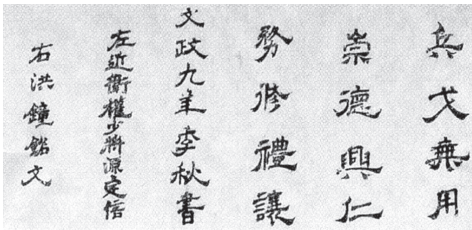 兵戈無用
崇德興仁
務修禮讓
文政九年季秋書
左近衛權少將源定信
右洪鐘銘文